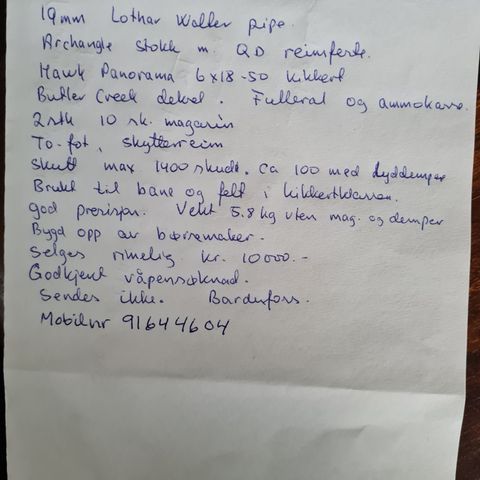 19mm Lothar Walter pipe.
Archangle stokk m. QD reimfeste.
Hawk Panorama 6x18-50 kikkert
Butler Creek deksel. Futteral og ammokasse.
2stk 10 sk. magasin
To-fot, skytterreim
Skutt max 1400 skudt. Ca 100 med lyddemper
Brukt til bane og felt i kikkertklassen.
god presisjon. Vekt 5.8 kg uten mag. og demper
Bygd opp av børsemaker.
Selges rimelig kr. 10000.-
Godkjent våpensøknad.
Sendes ikke. Bardufoss.
Mobilnr 91644604